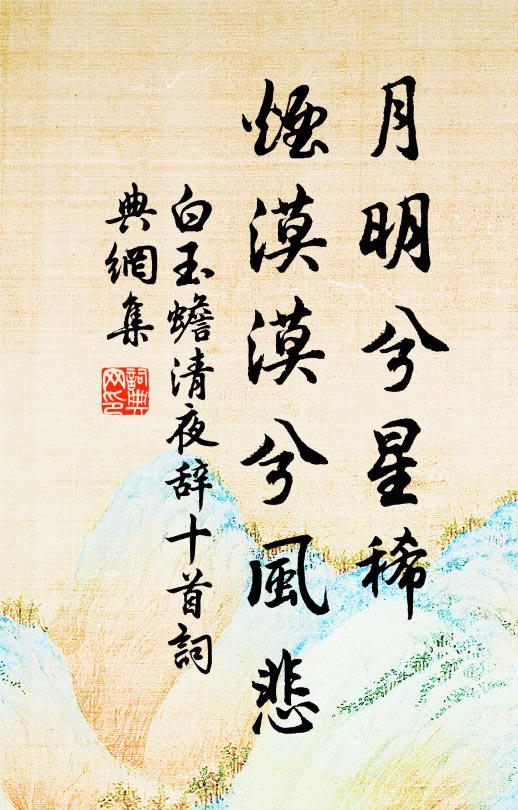 月明兮星稀
煙漠漠兮風悲
白玉蟾清夜辞十首詞
典網集
詞典
网印